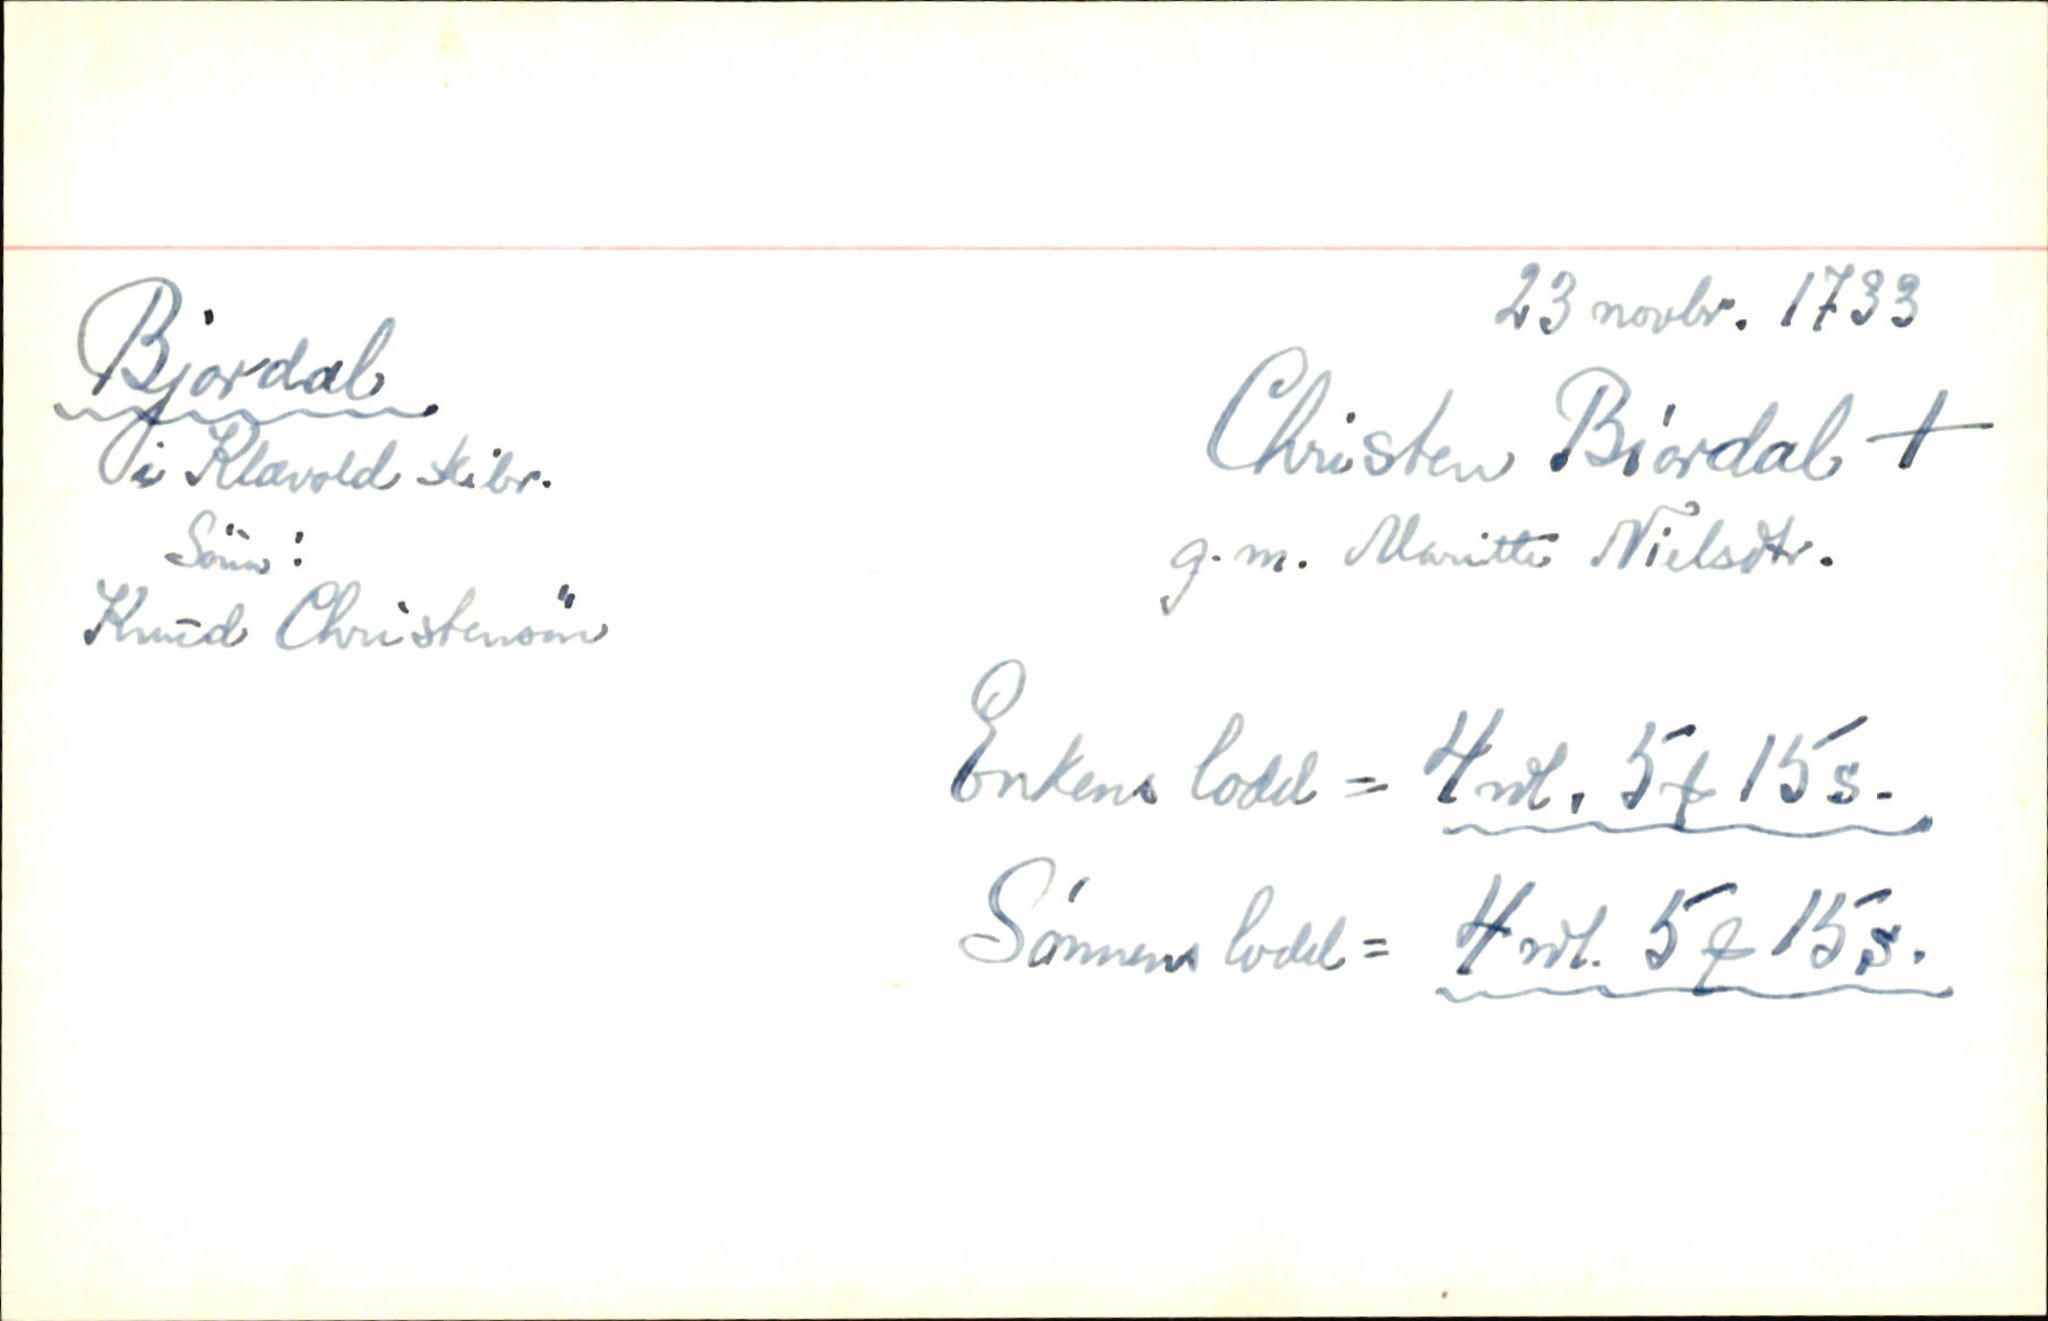 23 novbr. 1733
Bjordal
i Klævold skibr.
Sön:
Knud Christensön
Christen Biordal +
g. m. Maritte Nielsdtr.
Enkens lodd = 4 rdl. 5 f 15 s.
Sönnens lodd = 4 rdl. 5 f 15 s.